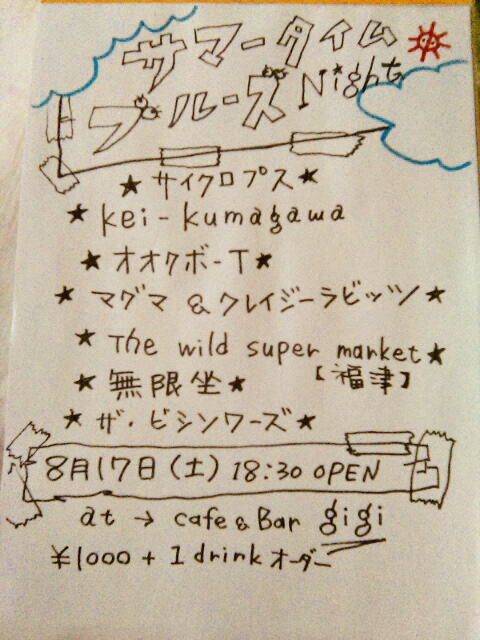 サマータイム
ブルーズ Night
★サイクロプス★
★kei-kumagawa
★オオクボ-T★
★マグマ & クレイジーラビッツ★
★The wild super market★
【福津】
★無限坐★
★ザ・ビシンワーズ★
8月17日(土) 18:30 OPEN
at → cafe & Bar gigi
¥1000 + 1 drink オーダー